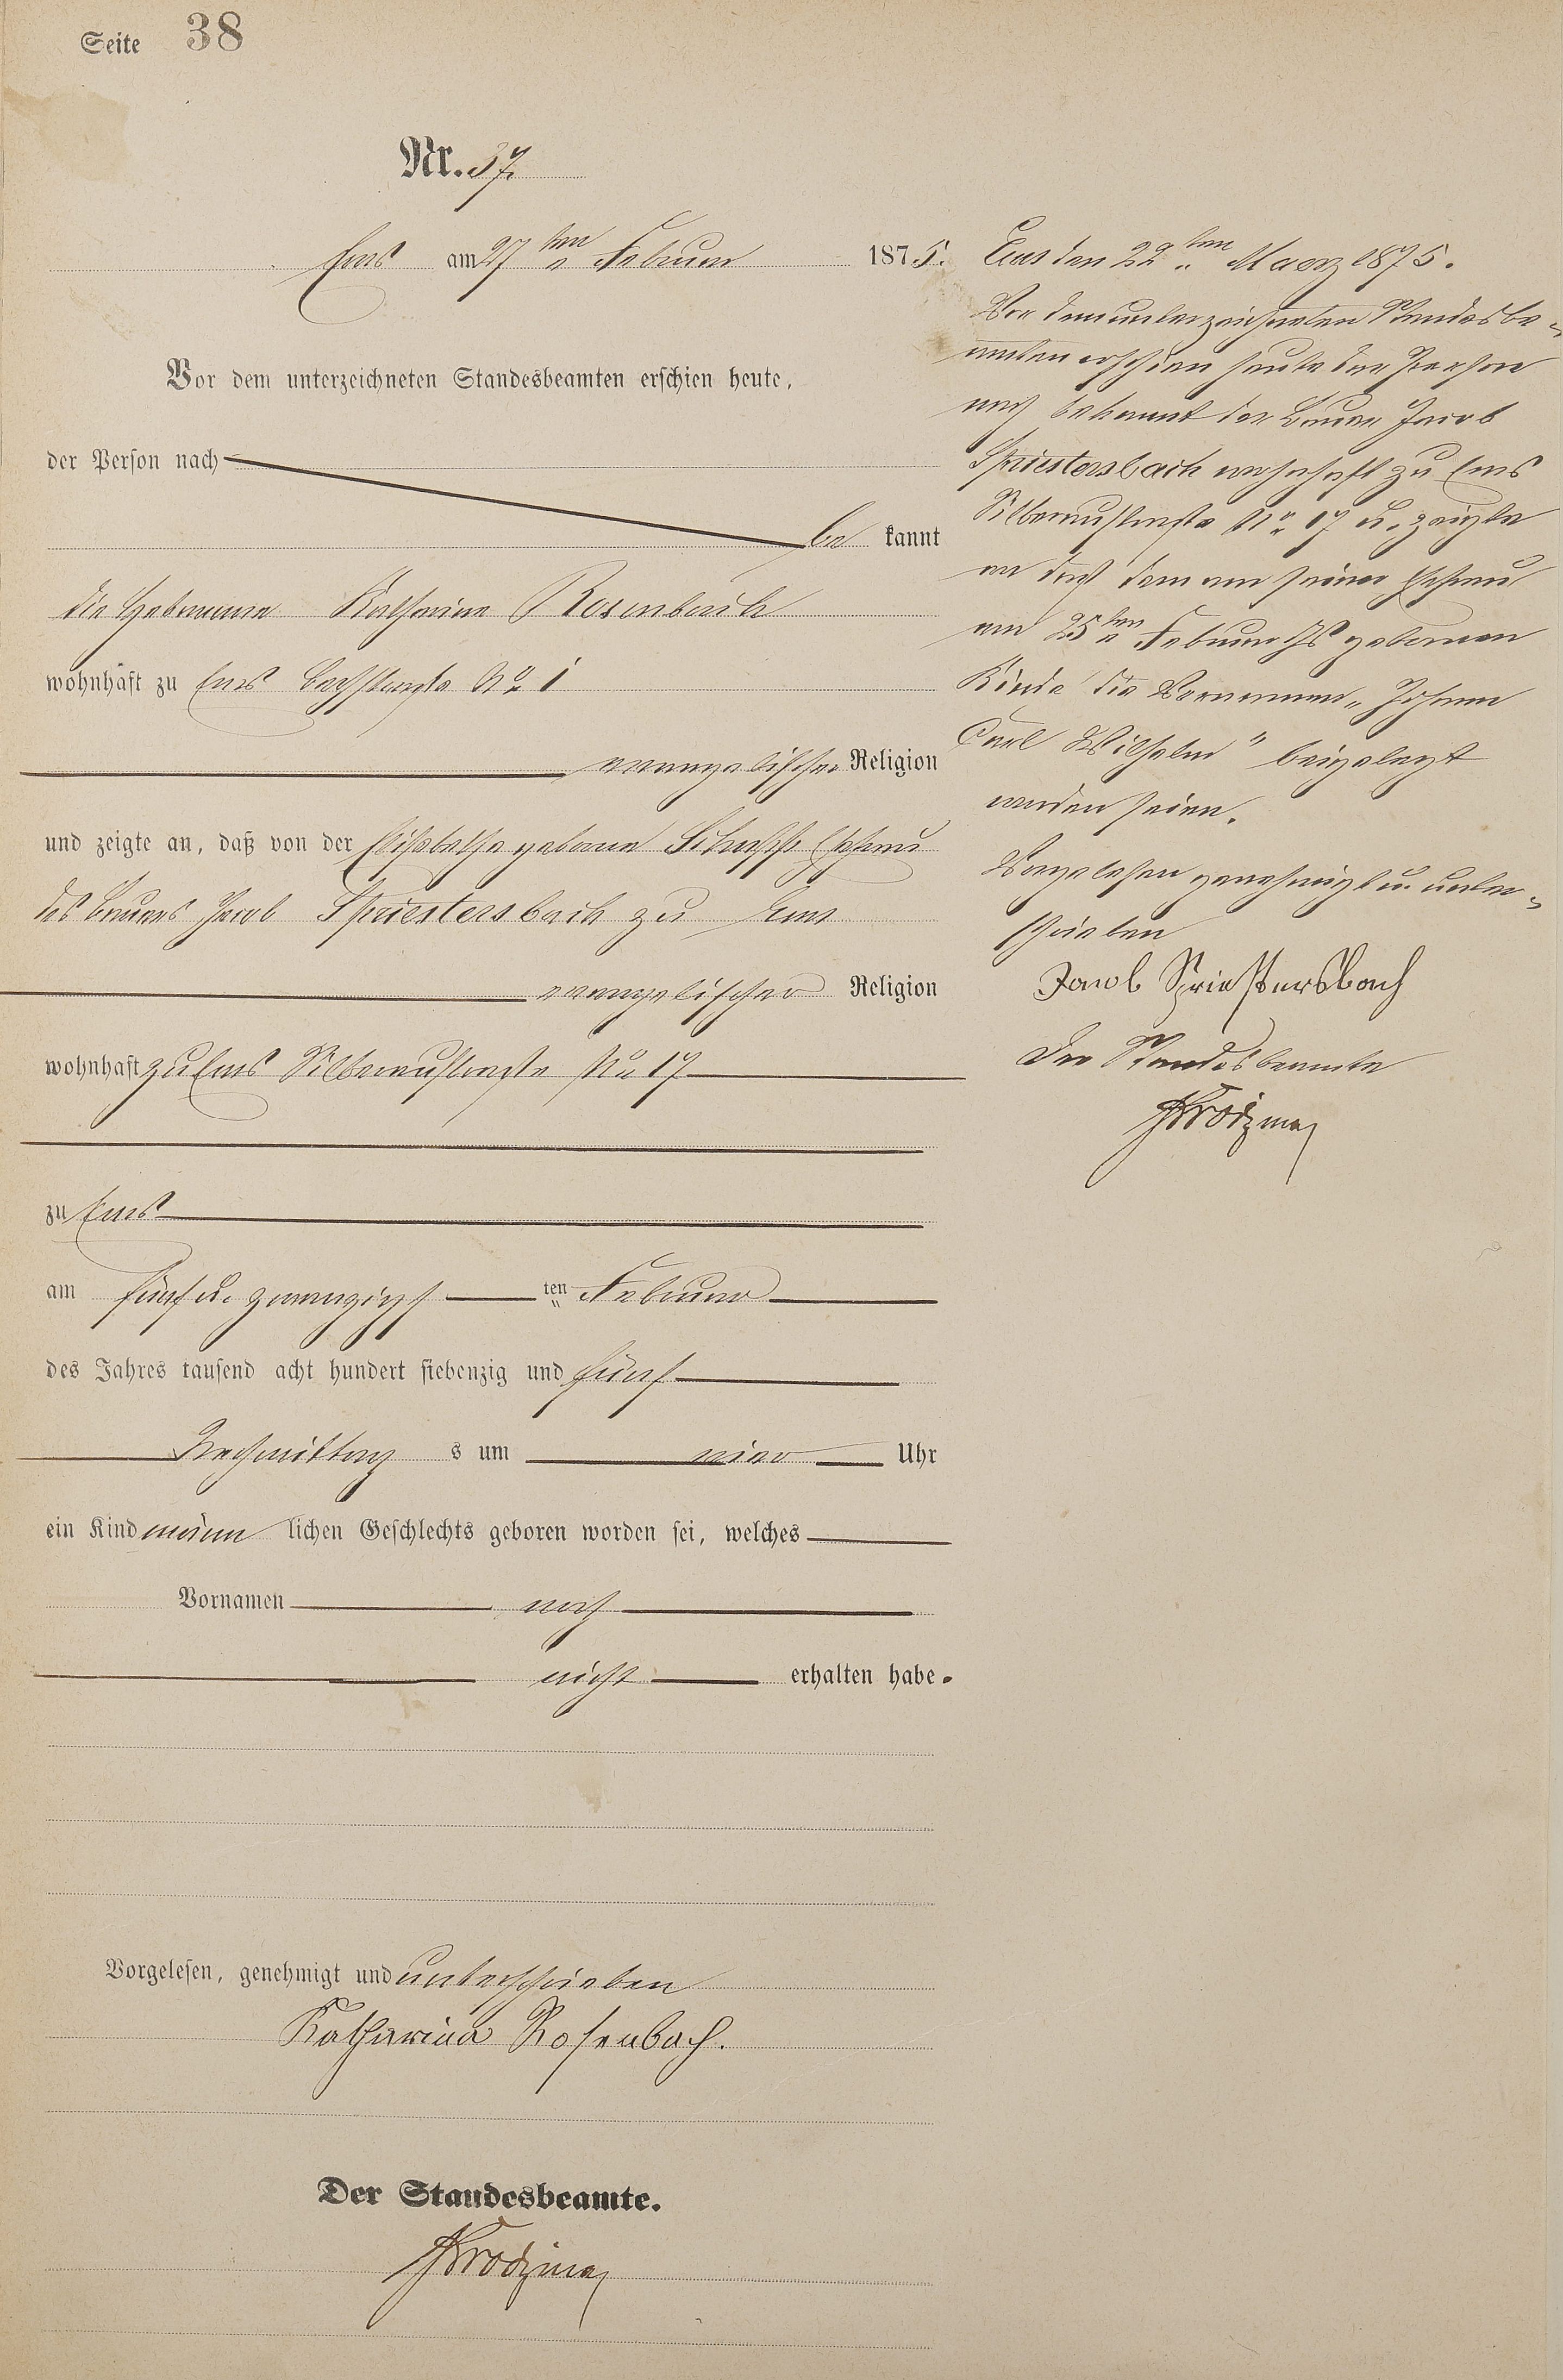 Seite 38
Nr. 37.
Ems am 27ten Februar 1875.
Vor dem unterzeichneten Standesbeamten erschien heute,
der Person nach
be kannt
die Hebamme Katharine Rosenbach
wohnhaft zu Ems Bachstraße No 1
evangelischer Religion
und zeigte an, daß von der Elisabetha geborne Ehefrau
des Jacob Spriestersbach zu Ems
evangelischer Religion
wohnhaft zu Ems Silberaustraße No 17
zu Ems
am fünf u. zwanzigst ten Februar
des Jahres tausend acht hundert siebenzig und fünf
Nachmittag s um vier Uhr
ein Kind männ lichen Geschlechts geboren worden sei, welches
Vornamen noch
nicht erhalten habe.
Vorgelesen, genehmigt und unterschrieben
Katharina Rosenbach.
Der Standesbeamte.
Ems den 22ten Maerz 1875.
Vor dem unterzeichneten Standesbe-
amten erschien heute der Person
nach bekannt der Jacob
Spriestersbach wohnhaft zu Ems
Silberaustraße No 17 u. zeigte
an daß dem von seiner Ehefrau
am 25ten Februar gebornen
Kinde die Vornamen „Johann
Carl Wilhelm" beigelegt
worden seien.
Vorgelesen genehmigt u. unter-
schrieben
Jacob Spriestersbach
Der Standesbeamte